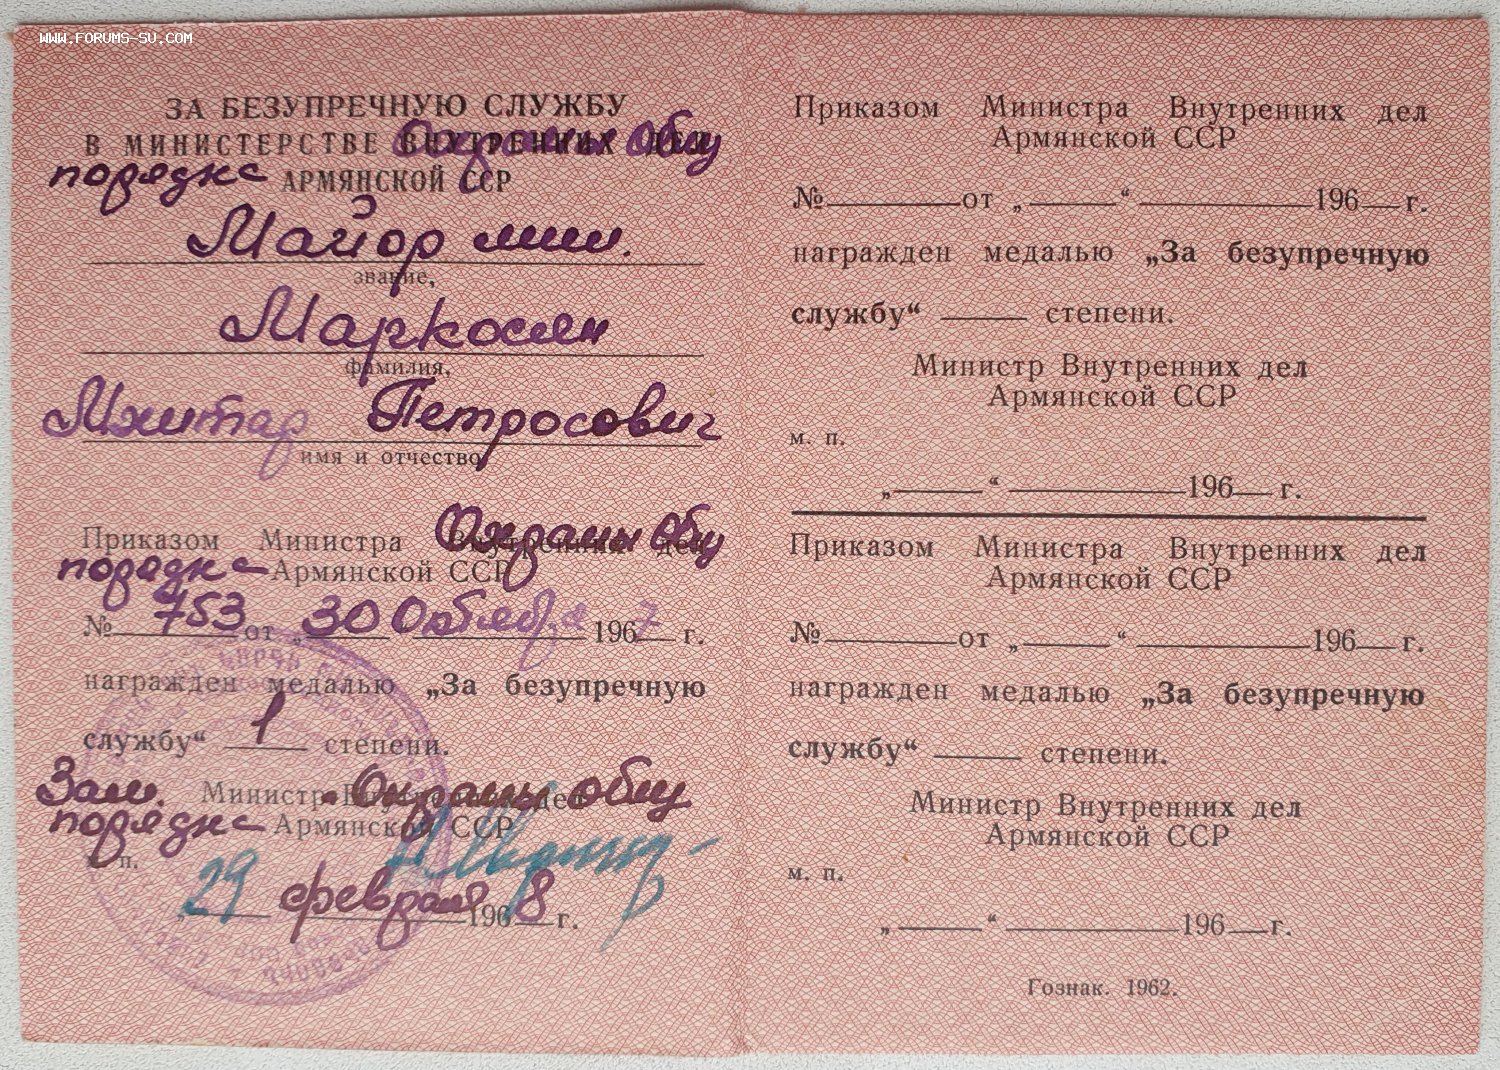 WWW.FORUMS-SU.COM
ЗА БЕЗУПРЕЧНУЮ СЛУЖБУ
В МИНИСТЕРСТВЕ ВНУТРЕННИХ ДЕЛ Охраны Общ
порядка АРМЯНСКОЙ ССР
Майор мил.
звание,
Маркосян
фамилия,
Мхитар Петросович
имя и отчество
Приказом Министра Внутренних дел Охраны Общ
порядка Армянской ССР
№ 753 от „30 Октября 1967 г.
награжден медалью „За безупречную
службу“ 1 степени.
Зам. Министр Внутренних дел Охраны общ
порядка Армянской ССР
м. п.
„29 февраля 1968 г.
Приказом Министра Внутренних дел
Армянской ССР
№ от „ “ 196 г.
награжден медалью „За безупречную
службу“ степени.
Министр Внутренних дел
Армянской ССР
м. п.
„ “ 196 г.
Приказом Министра Внутренних дел
Армянской ССР
№ от „ “ 196 г.
награжден медалью „За безупречную
службу“ степени.
Министр Внутренних дел
Армянской ССР
м. п.
„ “ 196 г.
Гознак. 1962.